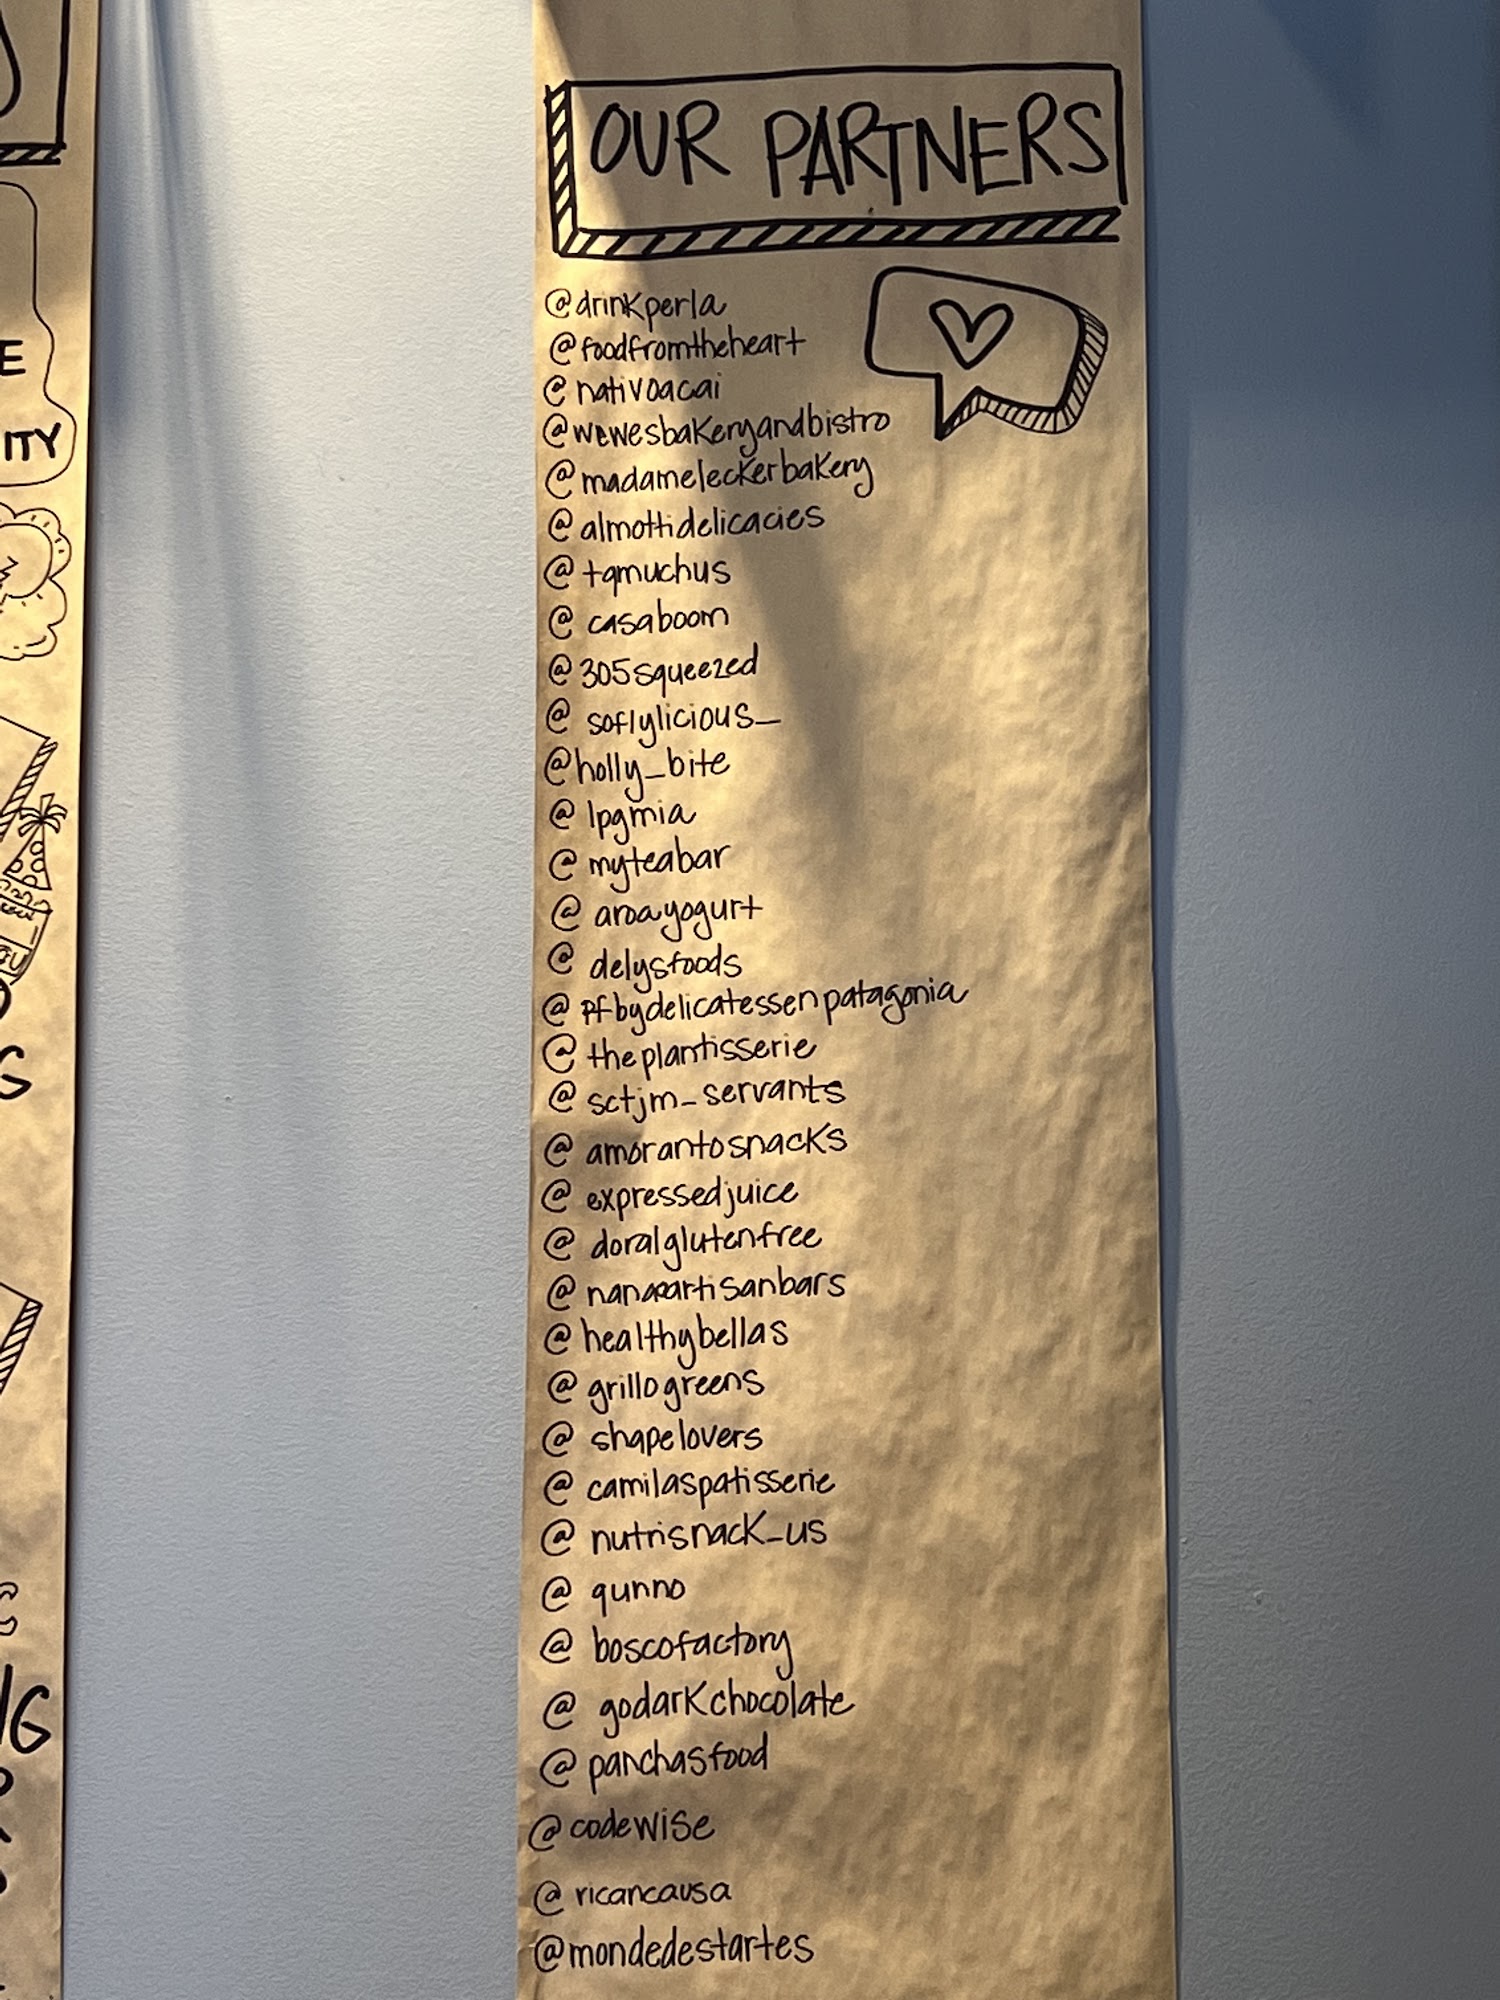 OUR PARTNERS
@drinkperla
@foodfromtheheart
@nativoacai
@wewesbakeryandbistro
@madameleckerbakery
@almottidelicacies
@tqmuchus
@casaboom
@305squeezed
@soflylicious_
@holly_bite
@lpgmia
@myteabar
@aroayogurt
@delysfoods
@pfbydelicatessenpatagonia
@theplantisserie
@sctjm_servants
@amorantosnacks
@expressedjuice
@doralglutenfree
@nanaartisanbars
@healthybellas
@grillogreens
@shapelovers
@camilaspatisserie
@nutrisnack_us
@qunno
@boscofactory
@godarkchocolate
@panchasfood
@codewise
@ricancausa
@mondedestartes
E
ITY
G